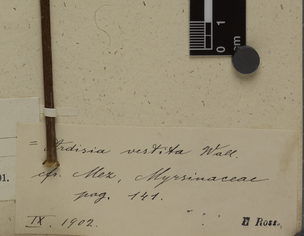 0 1
cm
= Ardisia vestita Wall.
cfr. Mez, Myrsinaceae
pag. 141.
01.
IX. 1902.
H Ross.